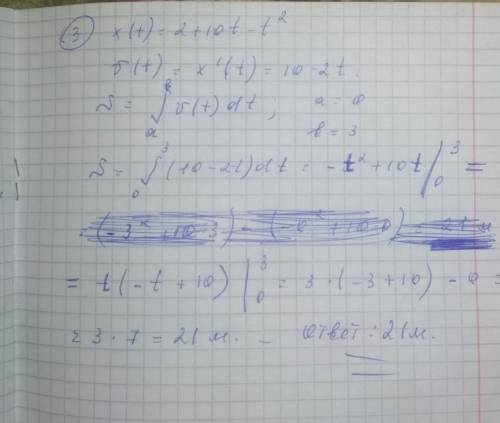 ③ x(t) = 2+10t-t²
v(t) = x'(t) = 10-2t.
S = ∫ₐᵇ v(t)dt; a = 0
b = 3
S = ∫₀³ (10-2t)dt = -t²+10t |₀³ =
= (-3²+10·3) - (-0²+10·0) = 21 м
= t(-t+10) |₀³ = 3·(-3+10) - 0 =
= 3·7 = 21 м. – ответ: 21 м.